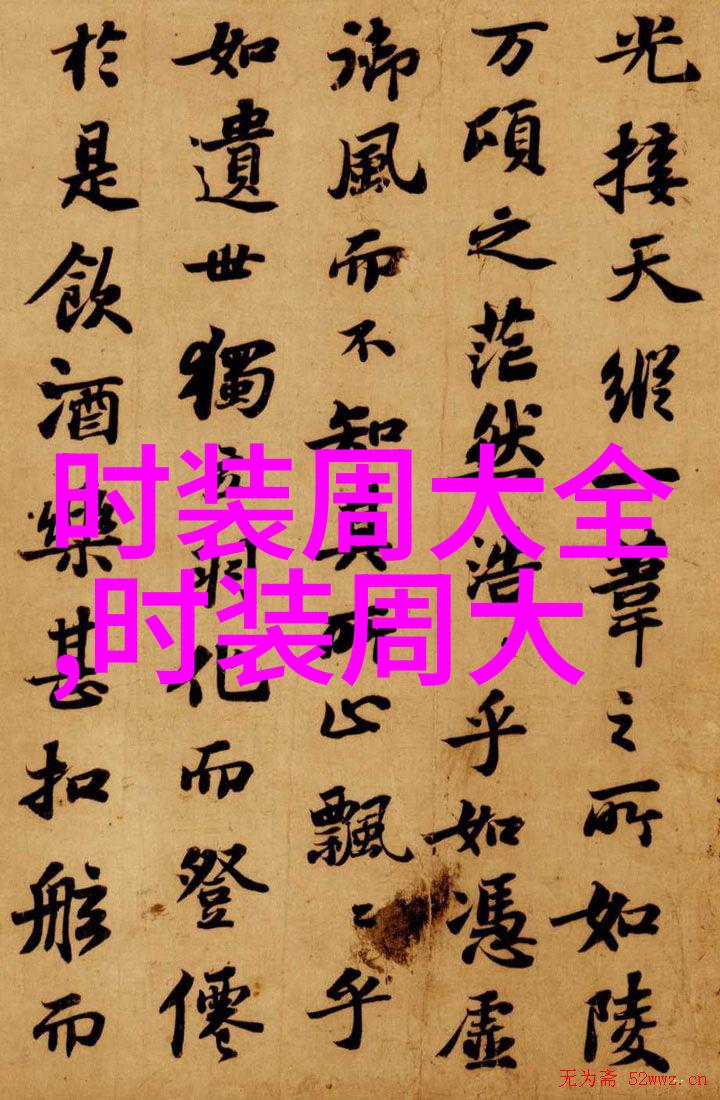 光接天縱一葦之所如陵
万頃之茫然浩〻乎如憑虛
御風而不知其所止飄〻乎
如遺世獨立羽化而登僊
於是飲酒樂甚扣舷而
时装周大全
,时装周大
无为斋 52wwz.cn